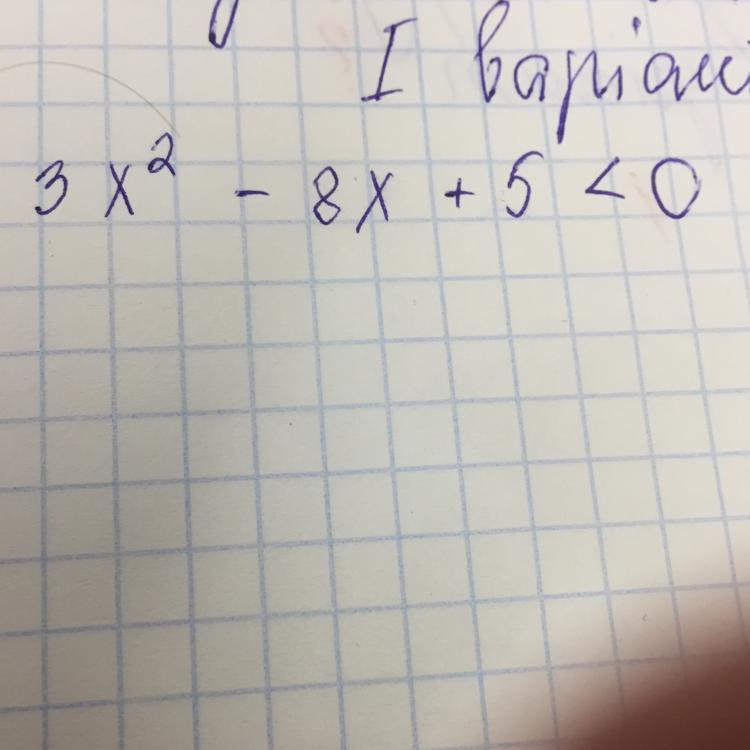 I варіан
3x² - 8x + 5 < 0